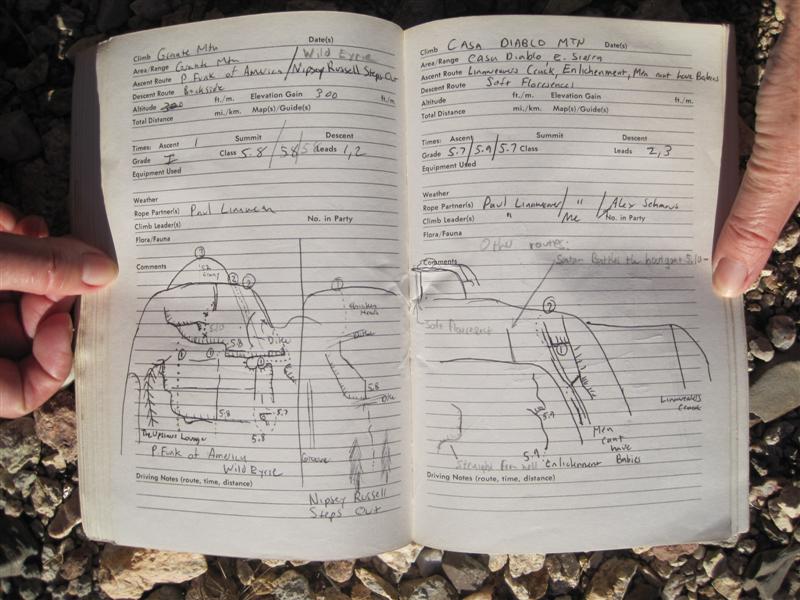 Climb Granite Mtn Date(s)
Area/Range Granite Mtn / Wild Eyrie
Ascent Route P. Funk of America / Nipsey Russell Steps Out
Descent Route Backside
Altitude 300 ft./m. Elevation Gain 300 ft./m.
Total Distance mi./km. Map(s)/Guide(s)
Times: Ascent 1 Summit Descent
Grade I Class 5.8 / 5.8 / 5.8 Leads 1,2
Equipment Used
Weather
Rope Partner(s) Paul Linaweaver
Climb Leader(s) No. in Party
Flora/Fauna
Comments
5.10
5.8
Dike
5.8
5.7
5.8
The Upstairs Lounge
P. Funk of America
Wild Eyrie
Chicken Heads
5.8
Dike
Nipsey Russell
Steps Out
Driving Notes (route, time, distance)
Climb CASA DIABLO MTN Date(s)
Area/Range Casa Diablo, E. Sierra
Ascent Route Linaweavers Crack, Enlichenment, Men cant have Babies
Descent Route
Altitude ft./m. Elevation Gain ft./m.
Total Distance mi./km. Map(s)/Guide(s)
Times: Ascent Summit Descent
Grade 5.7 / 5.9 / 5.7 Class Leads 2,3
Equipment Used
Weather
Rope Partner(s) Paul Linaweaver / " / Alex
Climb Leader(s) " / Me No. in Party
Flora/Fauna
Other routes:
Comments
5.9
5.9
Enlichenment
Men
cant
have
Babies
Linaweavers
Crack
Driving Notes (route, time, distance)